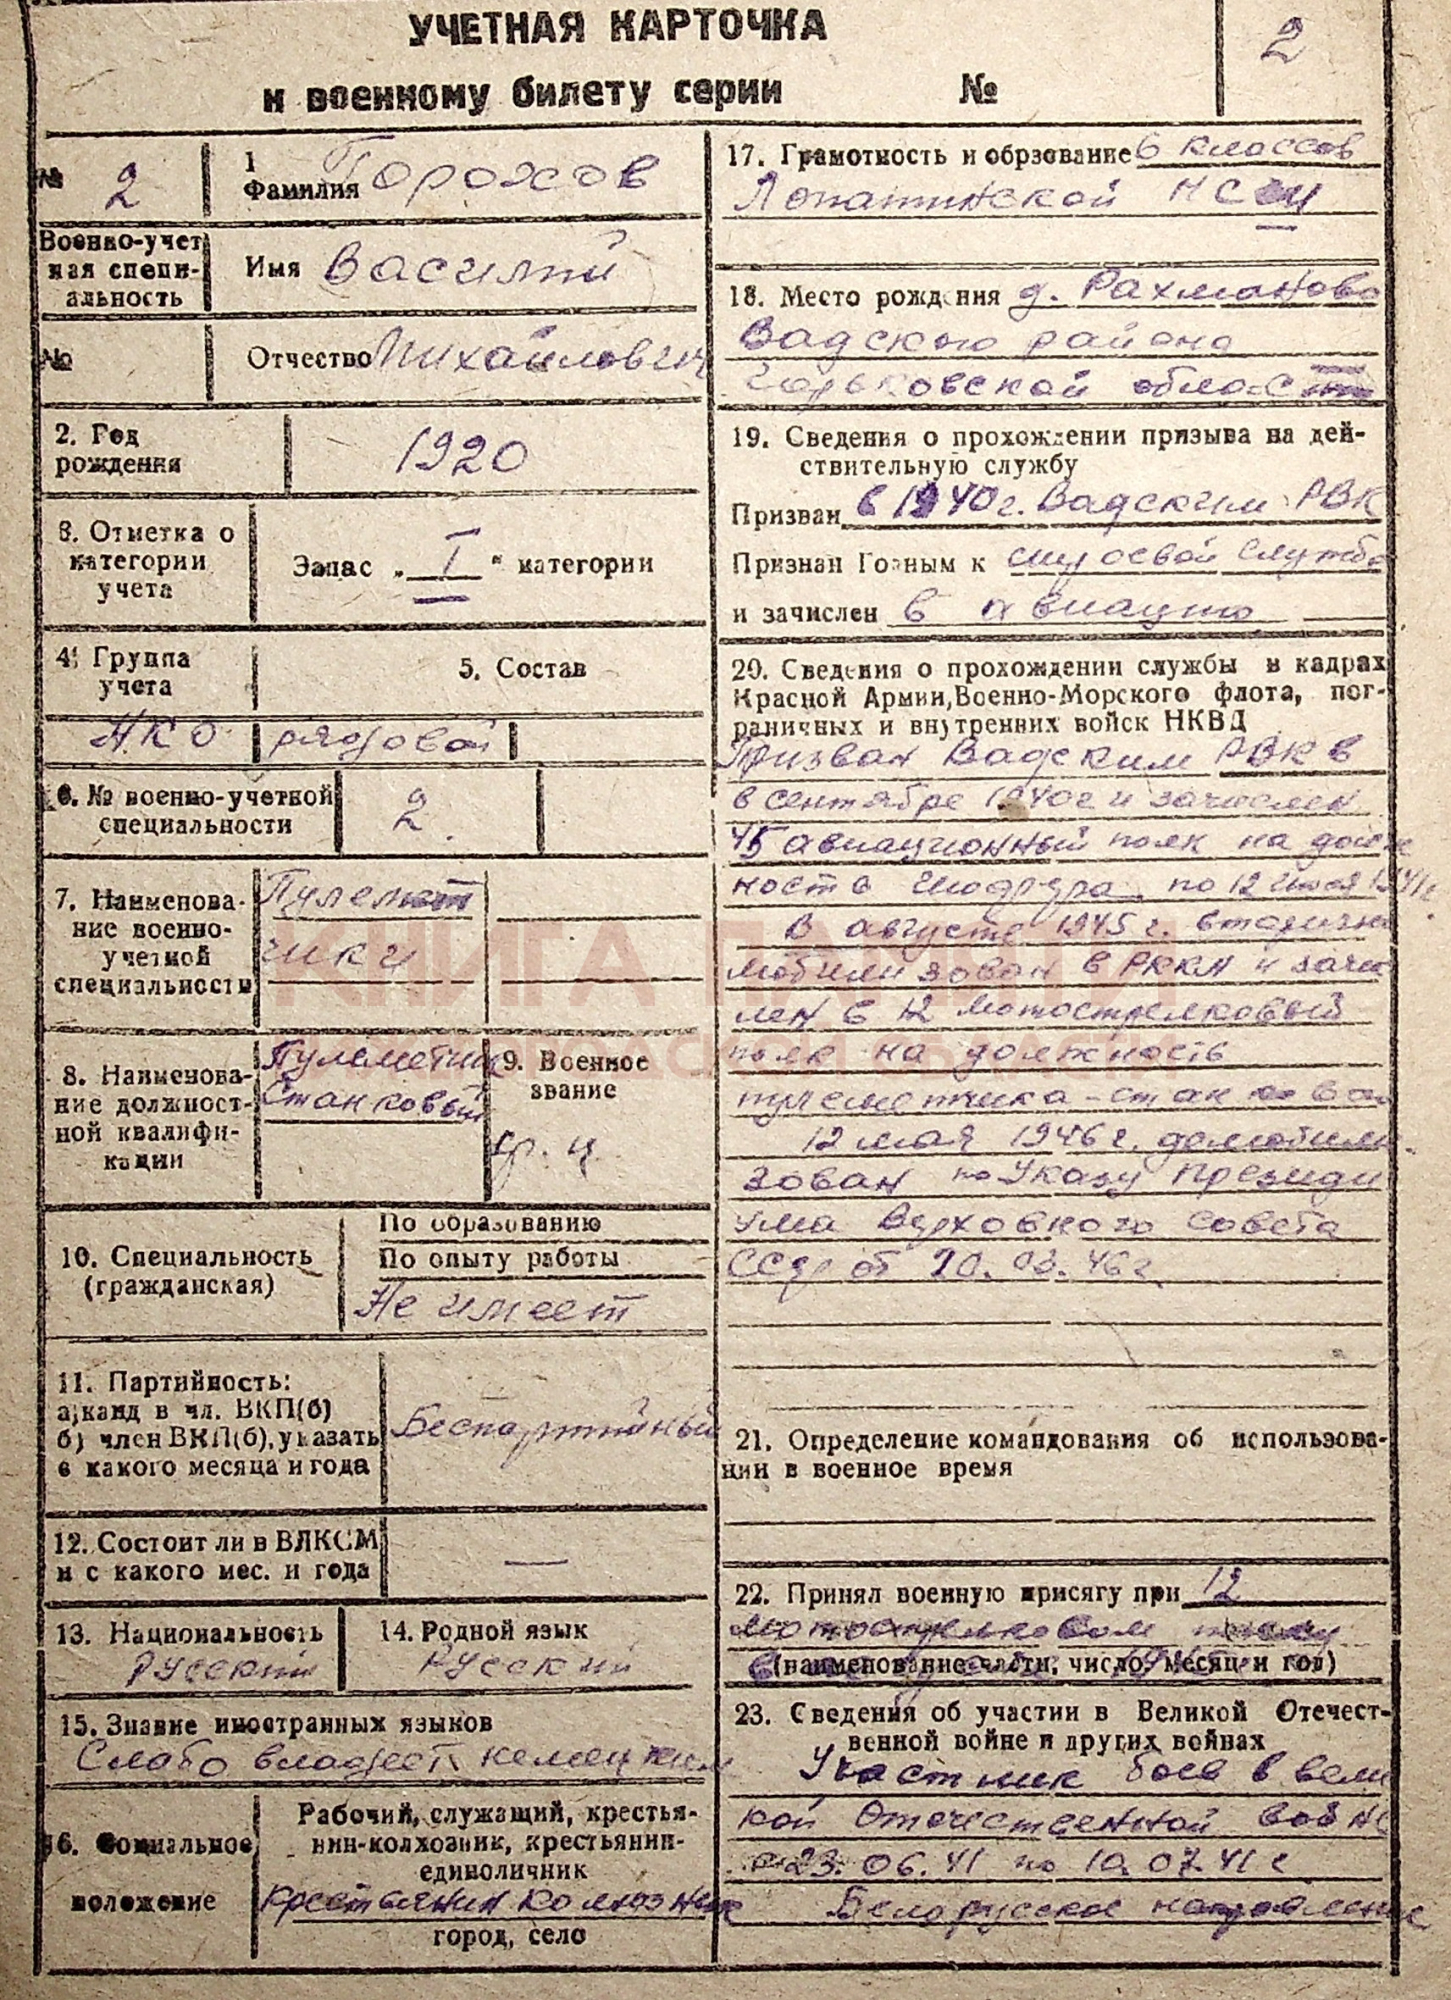 УЧЕТНАЯ КАРТОЧКА
к военному билету серии №
2
№ 2
1
Фамилия Горохов
Военно-учет
ная специ-
альность
Имя Василий
№
Отчество Михайлович
2. Год
рождения
1920
3. Отметка о
категории
учета
Запас „ I " категории
4. Группа
учета
5. Состав
НКО рядовой
6. № военно-учетной
специальности
2.
7. Наименова-
ние военно-
учетной
специальности
Пулемет
чики
8. Наименова-
ние должност-
ной квалифи-
кации
Пулеметчик
Станковый
9. Военное
звание
10. Специальность
(гражданская)
По образованию
По опыту работы
Не имеет
11. Партийность:
а) канд в чл. ВКП(б)
б) член ВКП(б), указать
с какого месяца и года
Беспартийный
12. Состоит ли в ВЛКСМ
и с какого мес. и года
—
13. Национальность
Русский
14. Родной язык
Русский
15. Знание иностранных языков
Слабо владеет немецким
16. Социальное
положение
Рабочий, служащий, крестья-
нин-колхозник, крестьянин-
единоличник
крестьянин колхозник
город, село
17. Грамотность и обрзование 6 классов
Лопатинской НСШ
18. Место рождения д. Рахманово
Вадского района
Горьковской област
19. Сведения о прохождении призыва на дей-
ствительную службу
Призван в 1940 г. Вадским РВК
Признан Годным к строевой службе
и зачислен в авиацию
20. Сведения о прохождении службы в кадрах
Красной Армии, Военно-Морского флота, пог-
раничных и внутренних войск НКВД
Призван Вадским РВК в
в сентябре 1940 г и зачислен
45 авиационный полк на долж
ность шофера по 12 июля 1941 г.
В августе 1945 г. вторично
мобилизован в РККА и зачис
лен в 12 мотострелковый
полк на должность
пулеметчика - станково
12 мая 1946 г. демобили-
зован по Указу Президи
ума Верховного Совета
СССР от 20.03.46 г.
21. Определение командования об использова-
нии в военное время
22. Принял военную присягу при 12
мотострелковом полку
(наименование части, число, месяц и год)
23. Сведения об участии в Великой Отечест-
венной войне и других войнах
Участник боев в Вели
кой Отечественной войне
с 23.06.41 по 10.07.41 г
Белорусское направление
КНИГА ПАМЯТИ